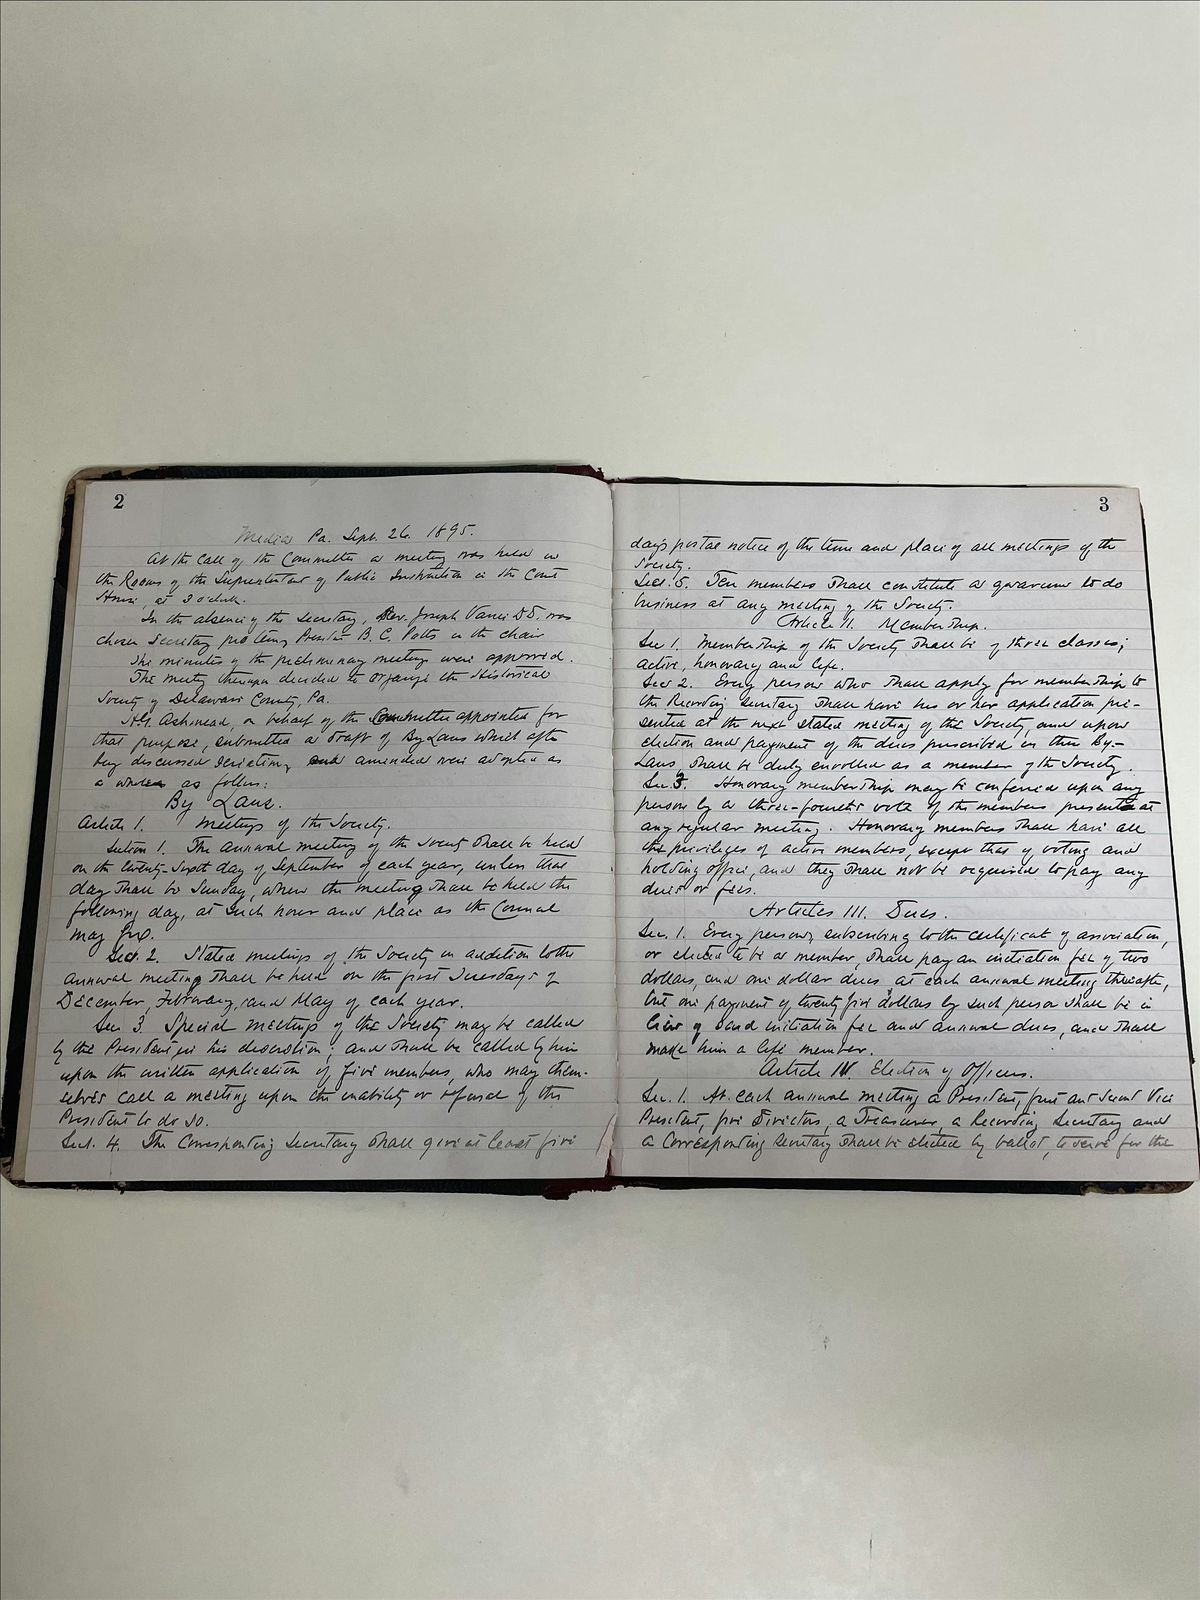 2
Media Pa. Sept. 26. 1895.
At the Call of the Committee a meeting was held in
the Rooms of the Superintendent of Public Instruction in the Court
House, at 3 o'clock.
In the absence of the Secretary, Rev. Joseph Vance D.D. was
chosen Secretary pro tem, President B. C. Potts in the chair
The minutes of the preliminary meetings were approved.
The meeting thereupon decided to organize the Historical
Society of Delaware County, Pa.
H.G. Ashmead, on behalf of the Committee appointed for
that purpose, submitted a draft of By Laws which after
being discussed seriatim, and amended were adopted as
a whole as follows:
By Laws.
Article 1. Meetings of the Society.
Section 1. The annual meeting of the Society shall be held
on the twenty-sixth day of September of each year, unless that
day shall be Sunday, when the meeting shall be held the
following day, at such hour and place as the Council
may fix.
Sect. 2. Stated meetings of the Society in addition to the
annual meeting shall be held on the first Tuesdays of
December, February, and May of each year.
Sec. 3. Special meetings of the Society may be called
by the President in his discretion; and shall be called by him
upon the written application of five members, who may them-
selves call a meeting upon the inability or refusal of the
President to do so.
Sect. 4. The Corresponding Secretary shall give at least five
3
days postal notice of the time and place of all meetings of the
Society.
Sec. 5. Ten members shall constitute a quorum to do
business at any meeting of the Society.
Article II. Membership.
Sec 1. Membership of the Society shall be of three classes;
active, honorary and life.
Sec 2. Every person who shall apply for membership to
the Recording Secretary shall have his or her application pre-
sented at the next stated meeting of the Society, and upon
election and payment of the dues prescribed in these By-
Laws, shall be duly enrolled as a member of the Society.
Sec. 3. Honorary membership may be conferred upon any
person by a three-fourths vote of the members present at
any regular meeting. Honorary members shall have all
the privileges of active members, except that of voting and
holding office, and they shall not be required to pay any
dues or fees.
Articles III. Dues.
Sec. 1. Every person, subscribing to the certificate of association,
or elected to be a member, shall pay an initiation fee of two
dollars, and one dollar dues at each annual meeting thereafter,
but one payment of twenty five dollars by such person shall be in
lieu of said initiation fee and annual dues, and shall
make him a life member.
Article IV. Election of Officers.
Sec. 1. At each annual meeting a President, first and second Vice
President, five Directors, a Treasurer, a Recording Secretary and
a Corresponding Secretary shall be elected by ballot, to serve for the